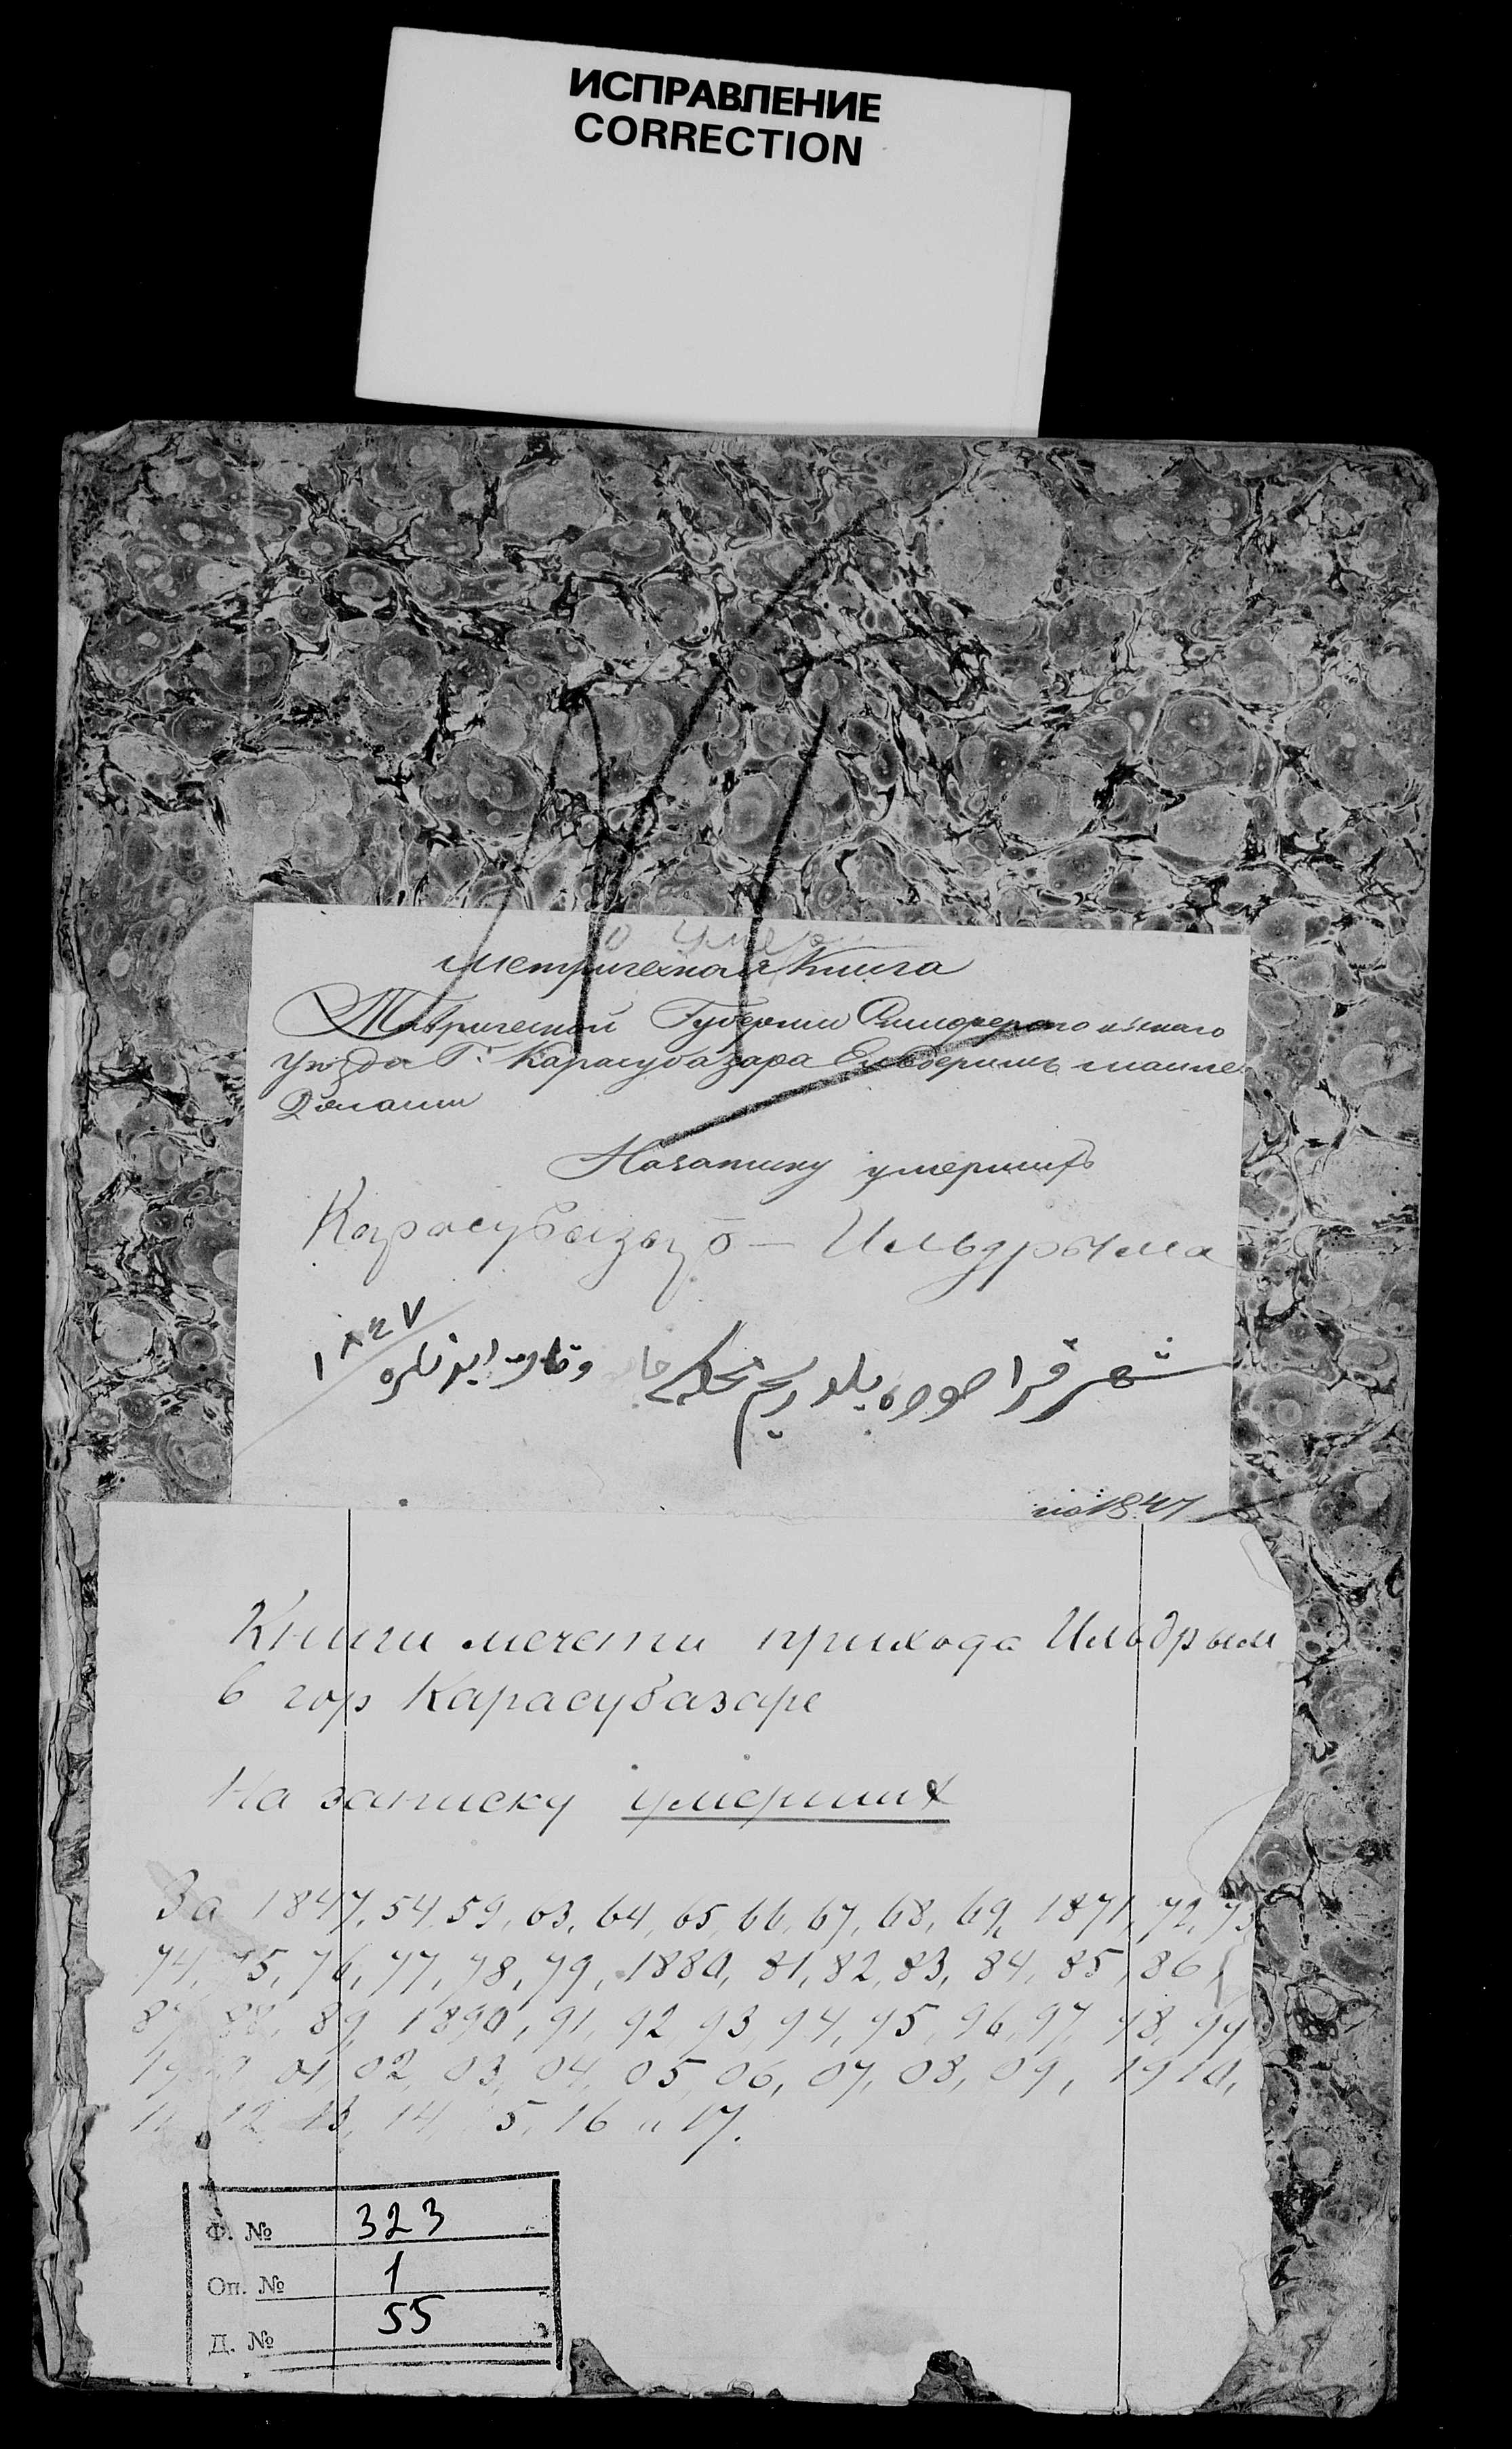 ИСПРАВЛЕНИЕ
CORRECTION
о умер
Метрическая Книга
Таврической Губернии
уезда Г. Карасубазара
На записку умершихъ
Карасубазар – Ильдрыма
١٨٤٧
شهر قرا صو يلدريم محله
на 1847
Книги мечети прихода Ильдрым
в гор Карасубазаре
На записку умерших
За 1847, 54, 59, 63, 64, 65, 66, 67, 68, 69, 1871, 72, 73
74, 75, 76, 77, 78, 79, 1880, 81, 82, 83, 84, 85, 86,
87, 88, 89, 1890, 91, 92, 93, 94, 95, 96, 97, 98, 99
01, 02, 03, 04, 05, 06, 07, 08, 09, 1910,
11, 12, 13, 14, 15, 16 и 17.
Ф. № 323
Оп. № 1
Д. № 55